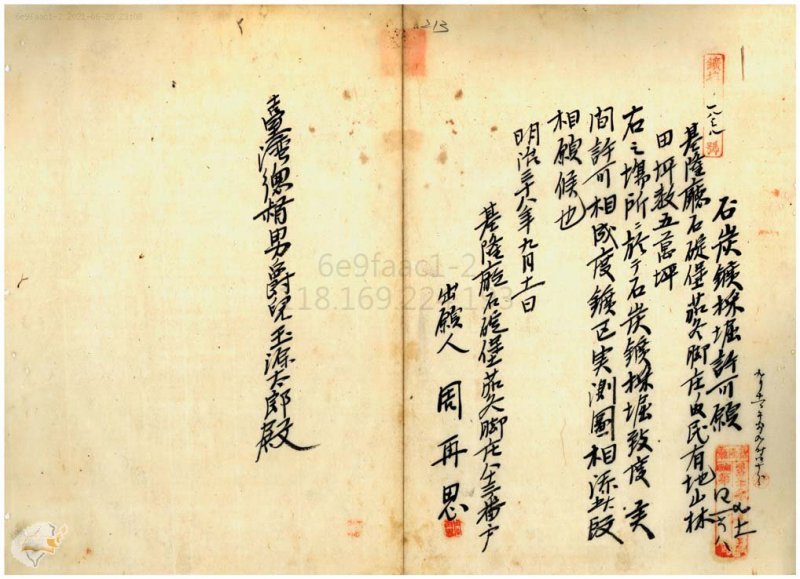 6e9faac1-2 2021-06-20 23:08
213
鑛
號
石炭鑛採堀許可願
基隆廳石碇堡茄苳脚庄内民有地山林
田坪数五萬坪
右之場所ニ於テ石炭鑛採堀致度
間許可相成度鑛区实測圖相添此段
相願候也
明治三十八年九月十一日
基隆廳石碇堡茄苳脚庄八十三番戶
出願人 周再思
臺灣總督男爵児玉源太郎殿
6e9faac1-2